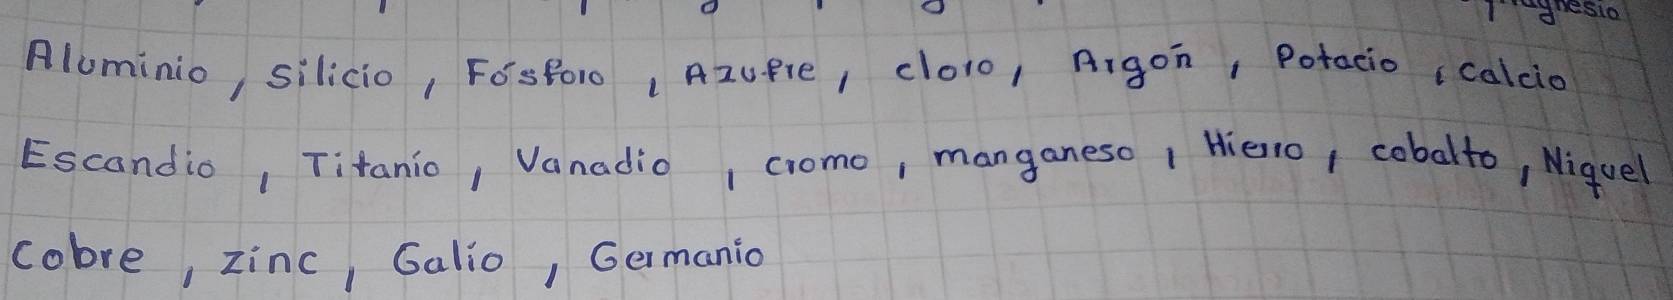 Aluminio, silicio, Fósforo, Azufre, cloro, Argón, Potacio, calcio
Escandio, Titanio, Vanadio, cromo, manganeso, Hierro, cobalto, Niquel
cobre, zinc, Galio, Germanio